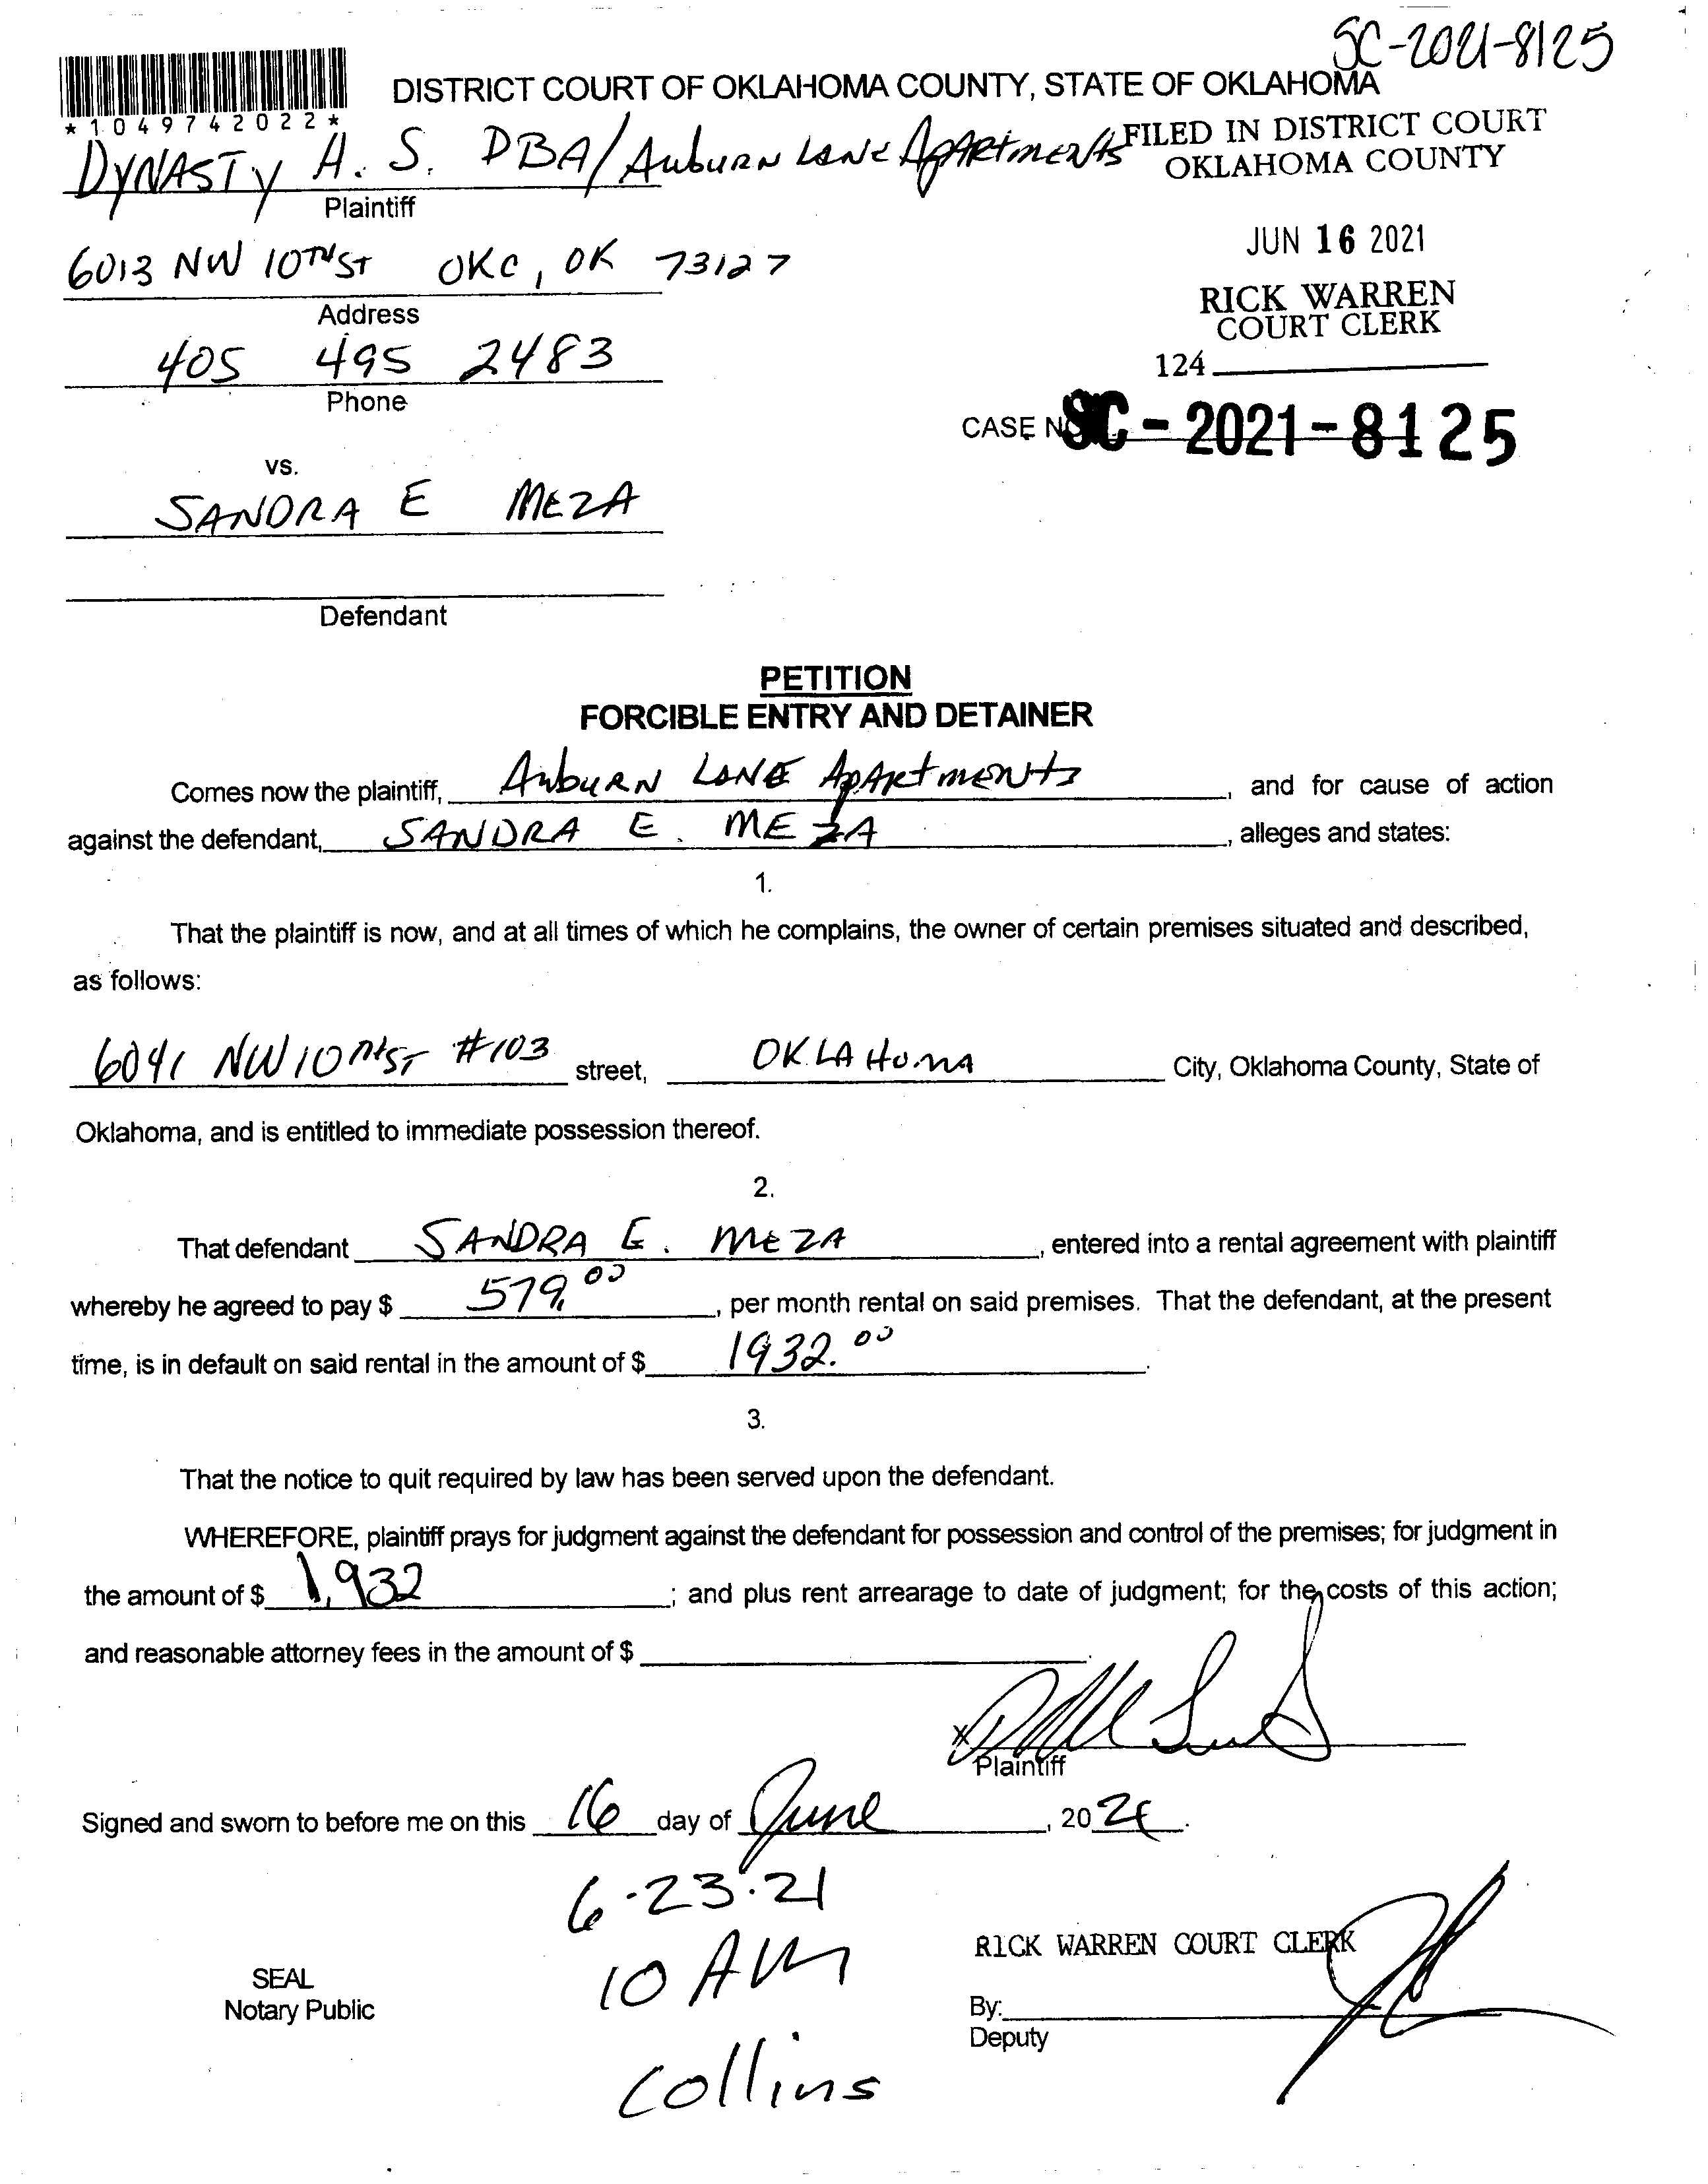 SC-2021-8125
*1049742022*
DISTRICT COURT OF OKLAHOMA COUNTY, STATE OF OKLAHOMA
DYNASTY A. S. DBA/Auburn Lane Apartments
FILED IN DISTRICT COURT
OKLAHOMA COUNTY
Plaintiff
JUN 16 2021
6013 NW 10TH ST OKC, OK 73127
Address
RICK WARREN
COURT CLERK
405 495 2483
124
Phone
CASE NO. SC-2021-8125
vs.
SANDRA E MEZA
Defendant
PETITION
FORCIBLE ENTRY AND DETAINER
Comes now the plaintiff, Auburn Lane Apartments, and for cause of action
against the defendant, SANDRA E. MEZA, alleges and states:
1.
That the plaintiff is now, and at all times of which he complains, the owner of certain premises situated and described,
as follows:
6041 NW 10TH ST #103 street, OKLAHOMA City, Oklahoma County, State of
Oklahoma, and is entitled to immediate possession thereof.
2.
That defendant SANDRA E. MEZA, entered into a rental agreement with plaintiff
whereby he agreed to pay $ 579.00, per month rental on said premises. That the defendant, at the present
time, is in default on said rental in the amount of $ 1932.00.
3.
That the notice to quit required by law has been served upon the defendant.
WHEREFORE, plaintiff prays for judgment against the defendant for possession and control of the premises; for judgment in
the amount of $ 1,932; and plus rent arrearage to date of judgment; for the costs of this action;
and reasonable attorney fees in the amount of $
X
Plaintiff
Signed and sworn to before me on this 16 day of June, 2021.
6-23-21
10 AM
Collins
RICK WARREN COURT CLERK
SEAL
Notary Public
By:
Deputy